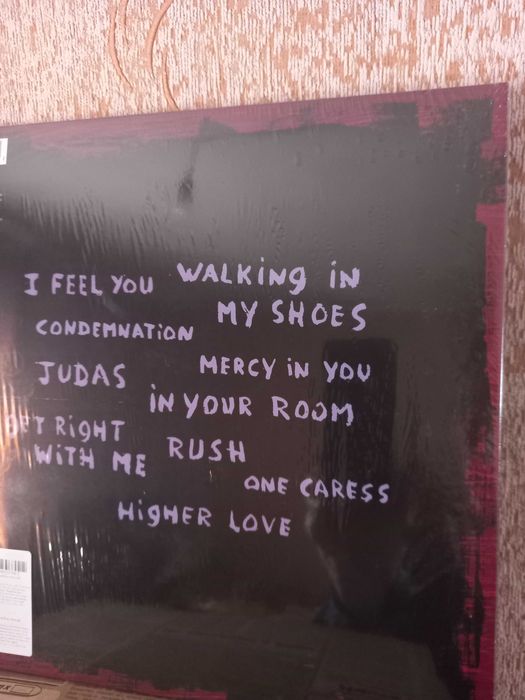 I FEEL YOU
WALKING iN
MY SHOES
CONDEMNATiON
JUDAS
MERCY iN YOU
iN YOUR ROOM
ET RiGHT
WiTH ME
RUSH
ONE CARESS
HiGHER LOVE